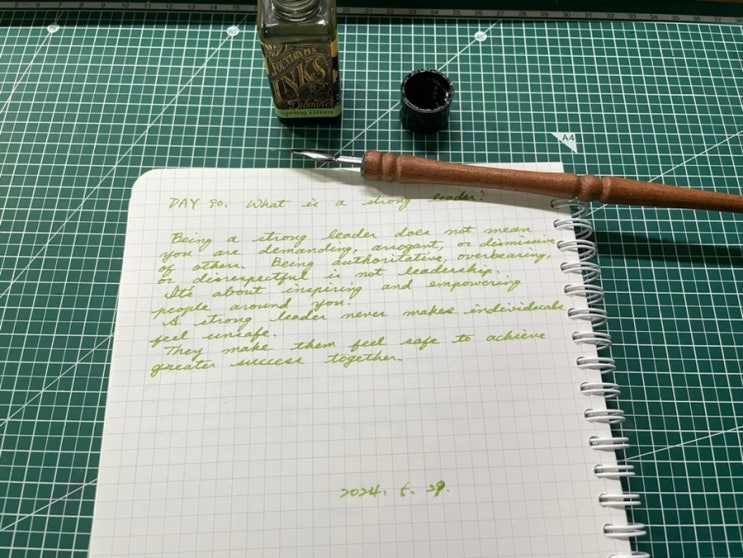 INKS
Spring Green
A4
DAY 90. What is a strong leader?
Being a strong leader does not mean
you are demanding, arrogant, or dismissive
of others. Being authoritative, overbearing,
or disrespectful is not leadership.
It's about inspiring and empowering
people around you.
A strong leader never makes individuals
feel unsafe.
They make them feel safe to achieve
greater success together.
2024. 6. 29.